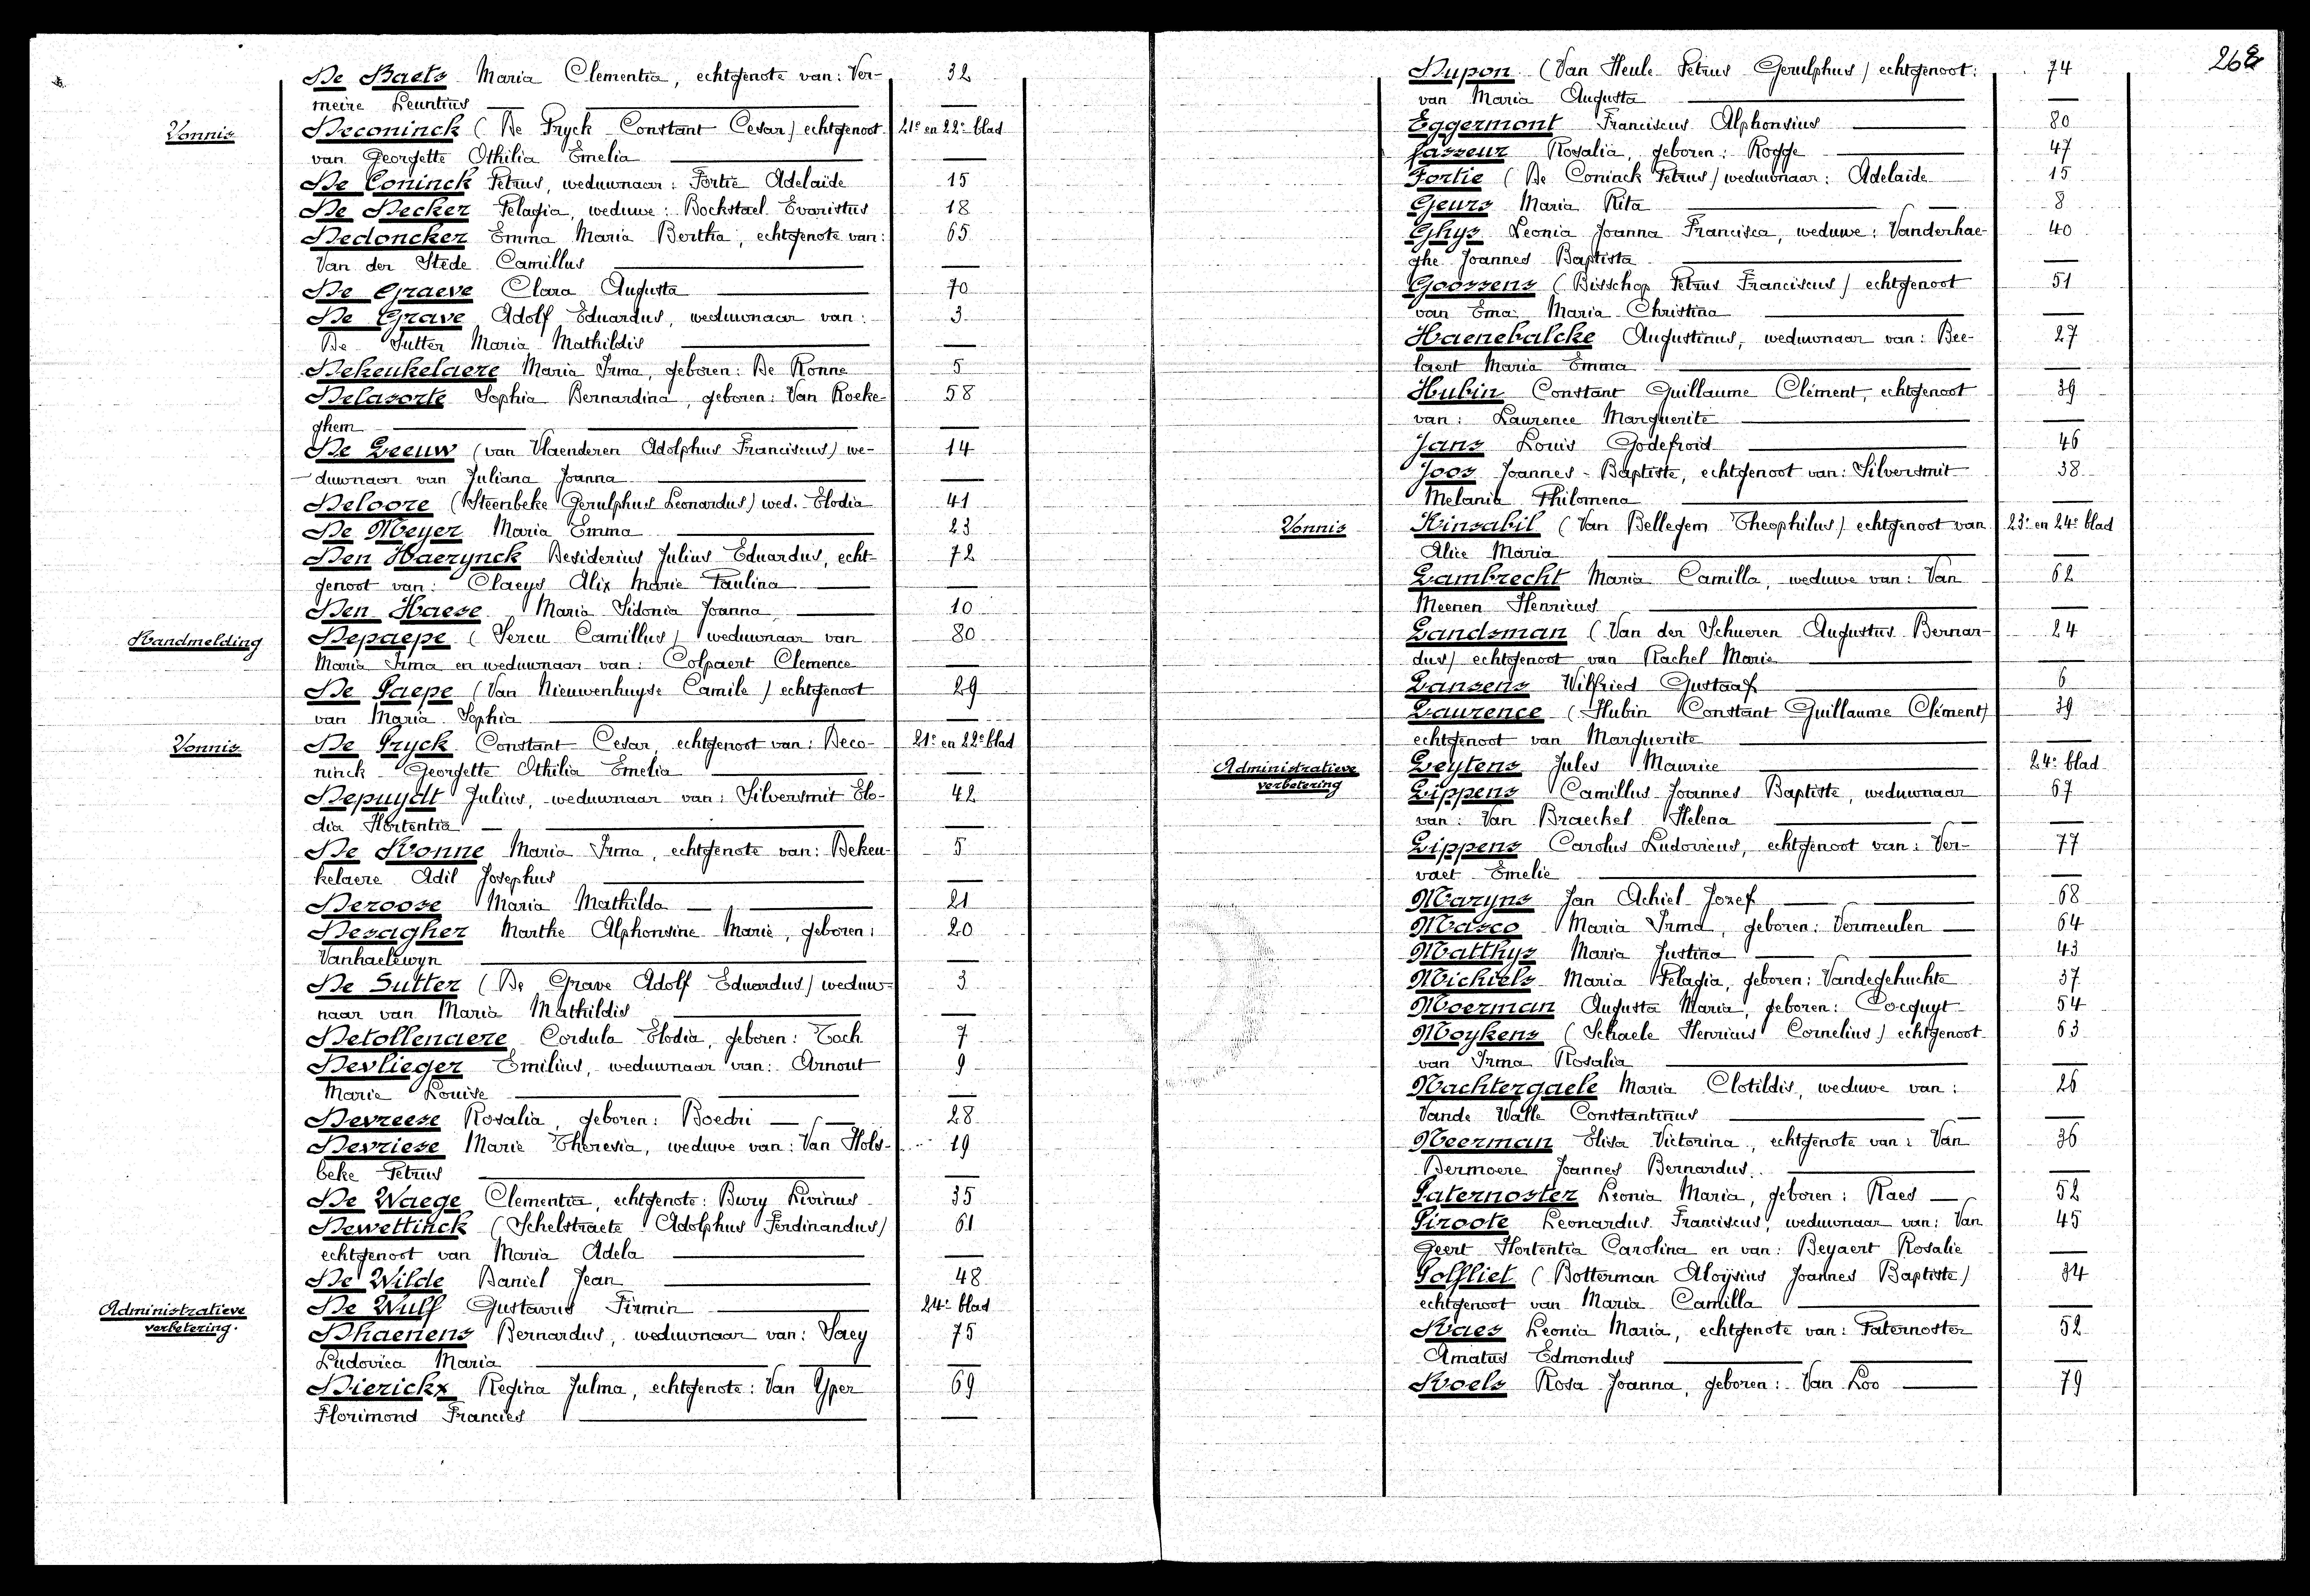 De Baets Maria Clementia, echtgenote van: Ver- 32
meire Leuntius
Vonnis Deconinck (De Pryck Constant Cesar) echtgenoot 21e en 22e blad
van Georgette Othilia Emelia
De Coninck Petrus, weduwnaar: Fortie Adelaïde 15
De Decker Pelagia, weduwe: Bockstael Evaristus 18
Dedoncker Emma Maria Bertha, echtgenote van: 65
Van der Stede Camillus
De Graeve Clara Augusta 70
De Grave Adolf Eduardus, weduwnaar van: 3
De Sutter Maria Mathildis
Dekeukelaere Maria Irma, geboren: De Ronne 5
Delasorte Sophia Bernardina, geboren: Van Roeke- 58
ghem
De Leeuw (van Vlaenderen Adolphus Franciscus) we- 14
duwnaar van Juliana Joanna
Deloore (Steenbeke Gerulphus Leonardus) wed. Elodia 41
De Meyer Maria Emma 23
Den Haerynck Desiderius Julius Eduardus, echt- 72
genoot van: Claeys Alix Marie Paulina
Den Haese Maria Sidonia Joanna 10
Randmelding Depaepe (Sercu Camillus) weduwnaar van 80
Maria Irma en weduwnaar van: Colpaert Clemence
De Paepe (Van Nieuwenhuyse Camile) echtgenoot 29
van Maria Sophia
Vonnis De Pryck Constant Cesar, echtgenoot van: Deco- 21e en 22e blad
ninck Georgette Othilia Emelia
Depuydt Julius, weduwnaar van: Silversmit Elo- 42
dia Hortentia
De Ronne Maria Irma, echtgenote van: Dekeu- 5
kelaere Adil Josephus
Deroose Maria Mathilda 21
Desagher Marthe Alphonsine Marie, geboren: 20
Vanhaelewyn
De Sutter (De Grave Adolf Eduardus) weduw- 3
naar van Maria Mathildis
Detollenaere Cordula Elodia, geboren: Toch 7
Devlieger Emilius, weduwnaar van: Arnout 9
Marie Louise
Devreese Rosalia, geboren: Boedri 28
Devriese Marie Theresia, weduwe van: Van Hols- 19
beke Petrus
De Waege Clementia, echtgenote: Bury Livinus 35
Dewettinck (Schelstraete Adolphus Ferdinandus) 61
echtgenoot van Maria Adela
De Wilde Daniel Jean 48
Administratieve De Wulf Gustavus Firmin 24e blad
verbetering. Dhaenens Bernardus, weduwnaar van: Saey 75
Ludovica Maria
Dierickx Regina Julma, echtgenote: Van Yper 69
Florimond Francies
268
Dupon (Van Heule Petrus Gerulphus) echtgenoot: 74
van Maria Augusta
Eggermont Franciscus Alphonsius 80
Fasseur Rosalia, geboren: Rogge 47
Fortie (De Coninck Petrus) weduwnaar: Adelaïde 15
Geurs Maria Rita 8
Ghys Leonia Joanna Francisca, weduwe: Vanderhae- 40
ghe Joannes Baptista
Goossens (Bisschop Petrus Franciscus) echtgenoot 51
van Ema Maria Christina
Haenebalcke Augustinus, weduwnaar van: Bee- 27
laert Maria Emma
Hubin Constant Guillaume Clément, echtgenoot 39
van: Laurence Marguerite
Jans Louis Godefroid 46
Joos Joannes-Baptiste, echtgenoot van: Silversmit 38
Melania Philomena
Vonnis Kinsabil (Van Bellegem Theophilus) echtgenoot van 23e en 24e blad
Alice Maria
Lambrecht Maria Camilla, weduwe van: Van 62
Meenen Henricus
Landsman (Van der Schueren Augustus Bernar- 24
dus) echtgenoot van Rachel Marie
Lansens Wilfried Gustaaf 6
Laurence (Hubin Constant Guillaume Clément) 39
echtgenoot van Marguerite
Administratieve Leytens Jules Maurice 24e blad
verbetering Lippens Camillus Joannes Baptiste, weduwnaar 67
van: Van Braeckel Helena
Lippens Carolus Ludovicus, echtgenoot van: Ver- 77
vaet Emelie
Maryns Jan Achiel Jozef 68
Masco Maria Irma, geboren: Vermeulen 64
Matthys Maria Justina 43
Michiels Maria Pelagia, geboren: Vandegehuchte 37
Moerman Augusta Maria, geboren: Cocquyt 54
Moykens (Schaele Henricus Cornelius) echtgenoot 63
van Irma Rosalia
Nachtergaele Maria Clotildis, weduwe van: 26
Vande Walle Constantinus
Neerman Elisa Victorina, echtgenote van: Van 36
Dermoere Joannes Bernardus
Paternoster Leonia Maria, geboren: Raes 52
Piroote Leonardus Franciscus, weduwnaar van: Van 45
Geert Hortentia Carolina en van: Beyaert Rosalie
Polfliet (Botterman Aloijsius Joannes Baptiste) 34
echtgenoot van Maria Camilla
Raes Leonia Maria, echtgenote van: Paternoster 52
Amatus Edmondus
Roels Rosa Joanna, geboren: Van Loo 79